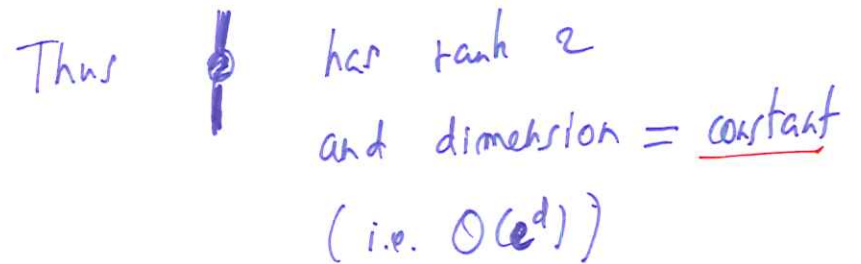 Thus 2 has rank 2
and dimension = constant
(i.e. O(e^d))